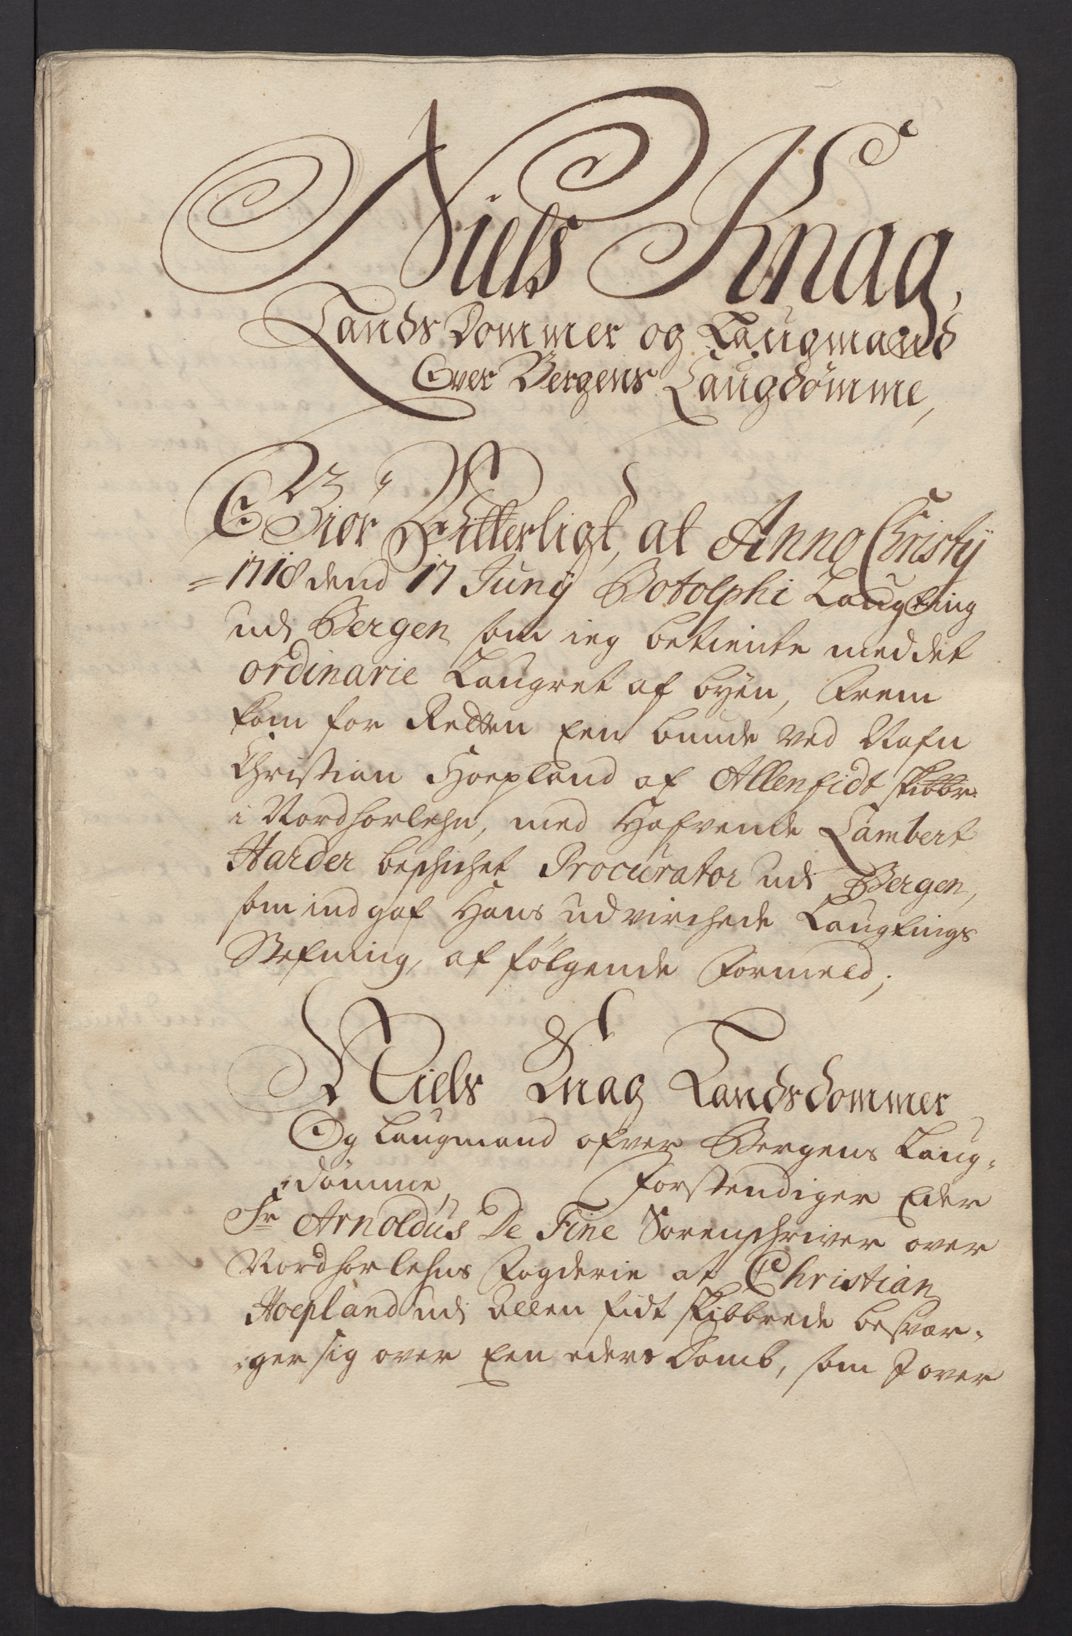 Niels Knag,
Lands Dommer og Laugmand
Over Bergens Laugdømme,
Giør Vitterligt, at Anno Christij
1718 dend 17 Junij Botolphi Laugting
udi Bergen som ieg betiente med det
ordinarie Laugret af byen, Frem
kom for Retten Een bunde ved Nafn
Christian Hoepland af Allenfidt skibbr.
i Nordhorlehn, med Hafvende Lambert
Harder beschichet Procurator udi Bergen,
som ind gaf Hans udvirchede Laugtings
Stefning, af følgende Formeld;
Niels Knag Landsdommer
Og Laugmand ofver Bergens Laug-
dømme, Forstendiger Eder
Sr Arnoldus De Fine Sorenschriver over
Nordhorlehns Fogderie at Christian
Hoepland udi Allen fidt skibbrede besvær-
ger sig over Een eders Domb, som I over